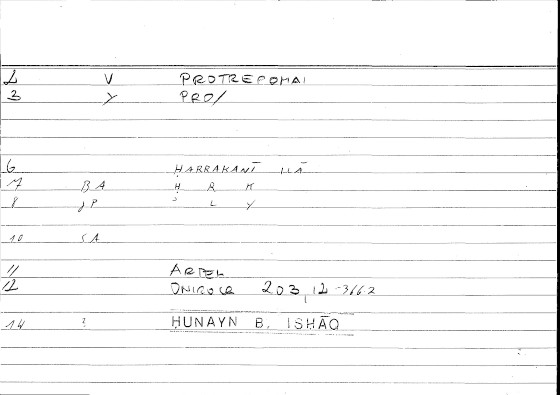 2 V PROTREPOMAI
3 Y PRO/
6 ḤARRAKANĪ ILĀ
7 BA Ḥ R K
8 JP S L Y
10 SA
11 ARTEL
12 ONIROCR 203,12-366.2
14 ? HUNAYN B. ISHĀQ